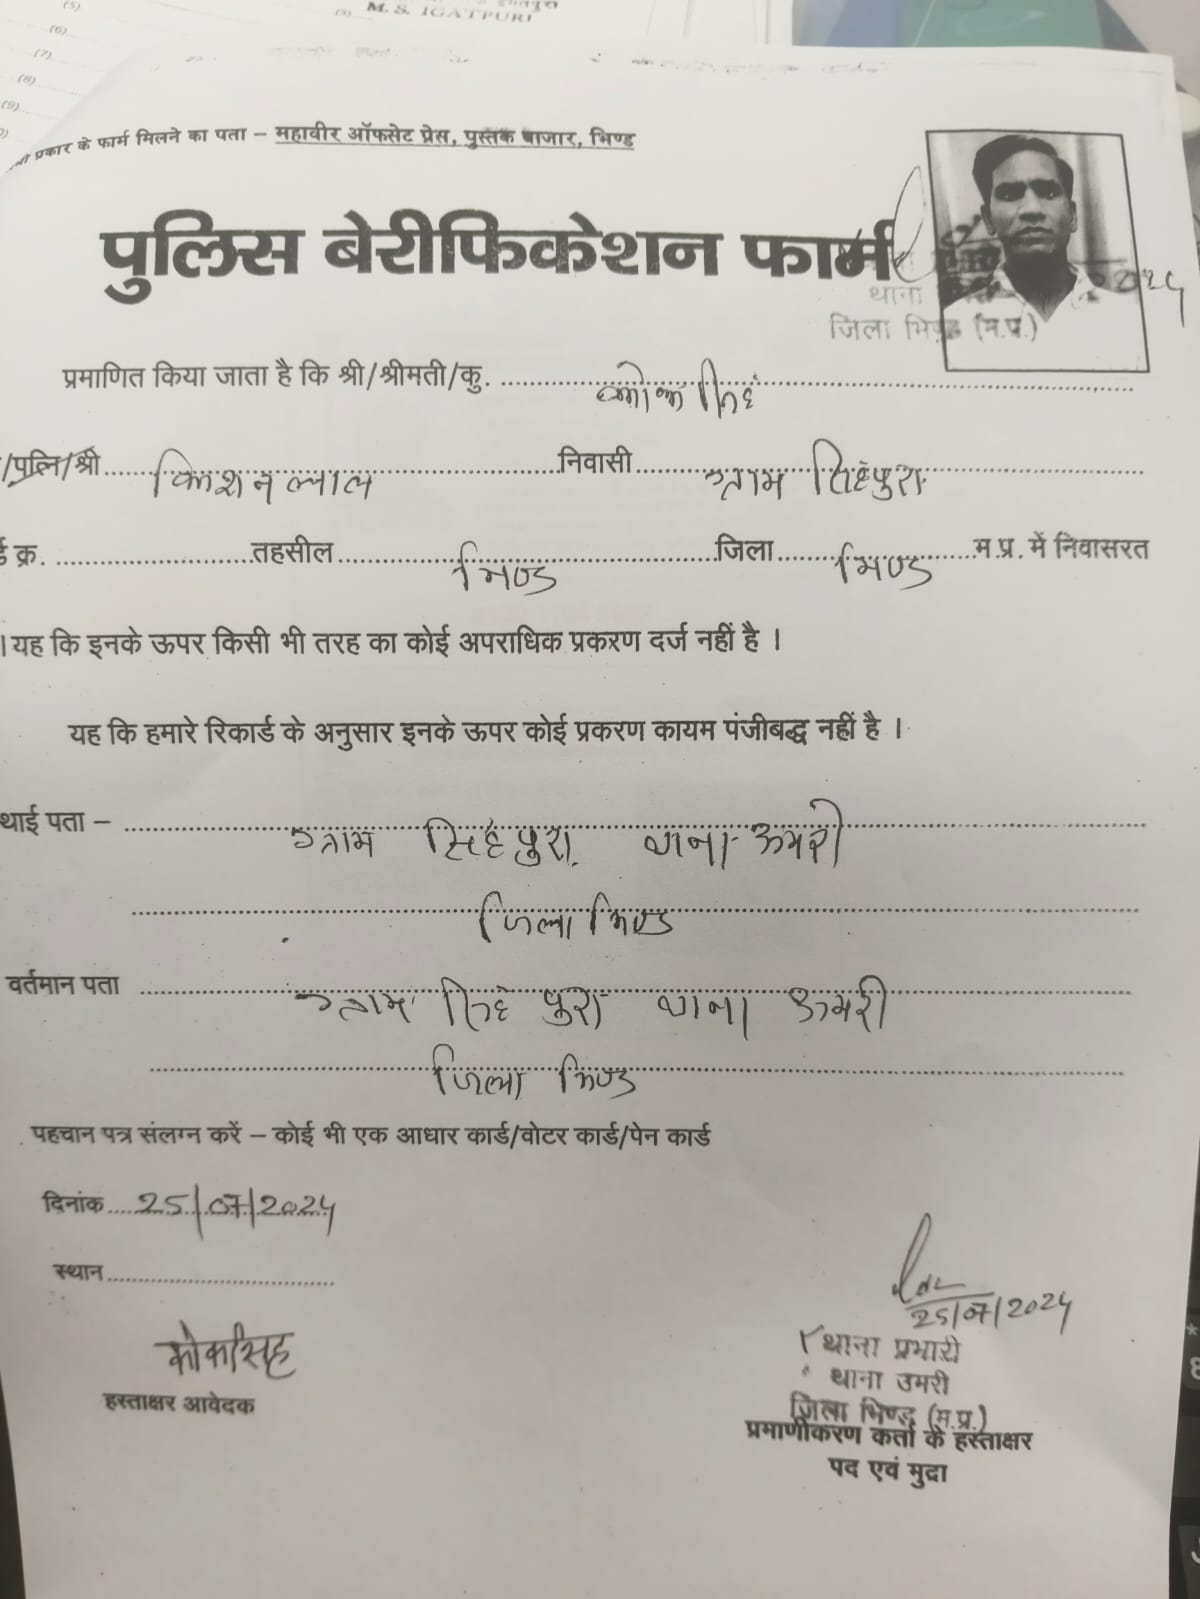 (5)
(6)
(7)
(8)
(9)
M. S. IGATPURI
प्रकार के फार्म मिलने का पता – महावीर ऑफसेट प्रेस, पुस्तक बाजार, भिण्ड
पुलिस बेरीफिकेशन फार्म
थाना
जिला भिण्ड (म.प्र.)
प्रमाणित किया जाता है कि श्री/श्रीमती/कु. कोक सिंह
/पत्नि/श्री किशन लाल निवासी ग्राम सिंहपुरा
क्र. तहसील भिण्ड जिला भिण्ड म.प्र. में निवासरत
। यह कि इनके ऊपर किसी भी तरह का कोई अपराधिक प्रकरण दर्ज नहीं है ।
यह कि हमारे रिकार्ड के अनुसार इनके ऊपर कोई प्रकरण कायम पंजीबद्ध नहीं है ।
थाई पता – ग्राम सिंहपुरा थाना ऊमरी
जिला भिण्ड
वर्तमान पता ग्राम सिंह पुरा थाना ऊमरी
जिला भिण्ड
पहचान पत्र संलग्न करें – कोई भी एक आधार कार्ड/वोटर कार्ड/पेन कार्ड
दिनांक 25/07/2024
स्थान
25/07/2024
कोकसिंह
हस्ताक्षर आवेदक
थाना प्रभारी
थाना उमरी
जिला भिण्ड (म.प्र.)
प्रमाणीकरण कर्ता के हस्ताक्षर
पद एवं मुद्रा